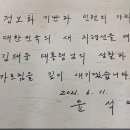 정보화 기반과 인권의 가치로
대한민국의 새 지평선을 여신
김대중 대통령님의 성찰과
가르침을 깊이 새기겠습니다
2021. 6. 11.
윤 석